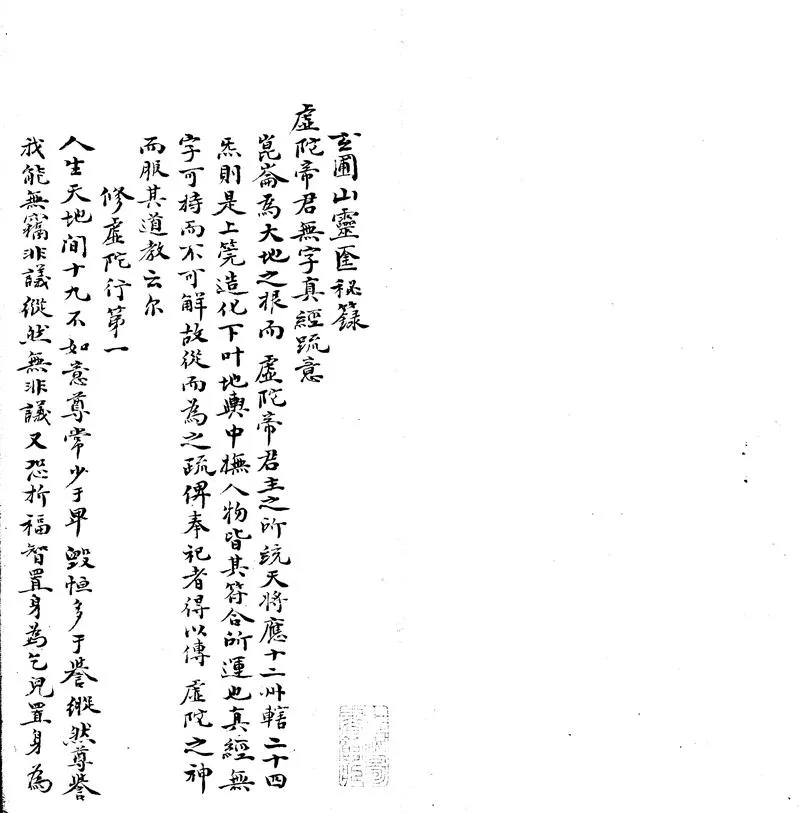 玄圃山靈匱秘籙
虛陀帝君無字真經疏意
崑崙為大地之根而 虛陀帝君主之所統天將應十二卅轄二十四
炁則是上筦造化下叶地輿中撫人物皆其符合所運也真經無
字可持而不可解故從而為之疏俾奉祀者得以傳 虛陀之神
而服其道教云尔
修虛陀行第一
人生天地间十九不如意尊常少于卑毀恒多于譽縱然尊譽
我能無竊非議縱然無非議又恐折福智置身為乞兒置身為